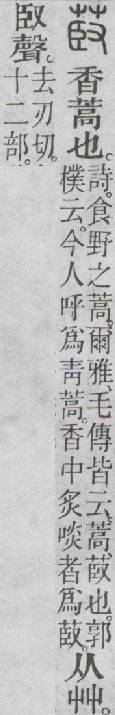 菣 香蒿也。
詩。食野之蒿。爾雅、毛傳皆云。蒿、菣也。郭
樸云。今人呼爲靑蒿。香中炙啖者爲菣。
从艸。
臤聲。
去刃切。
十二部。